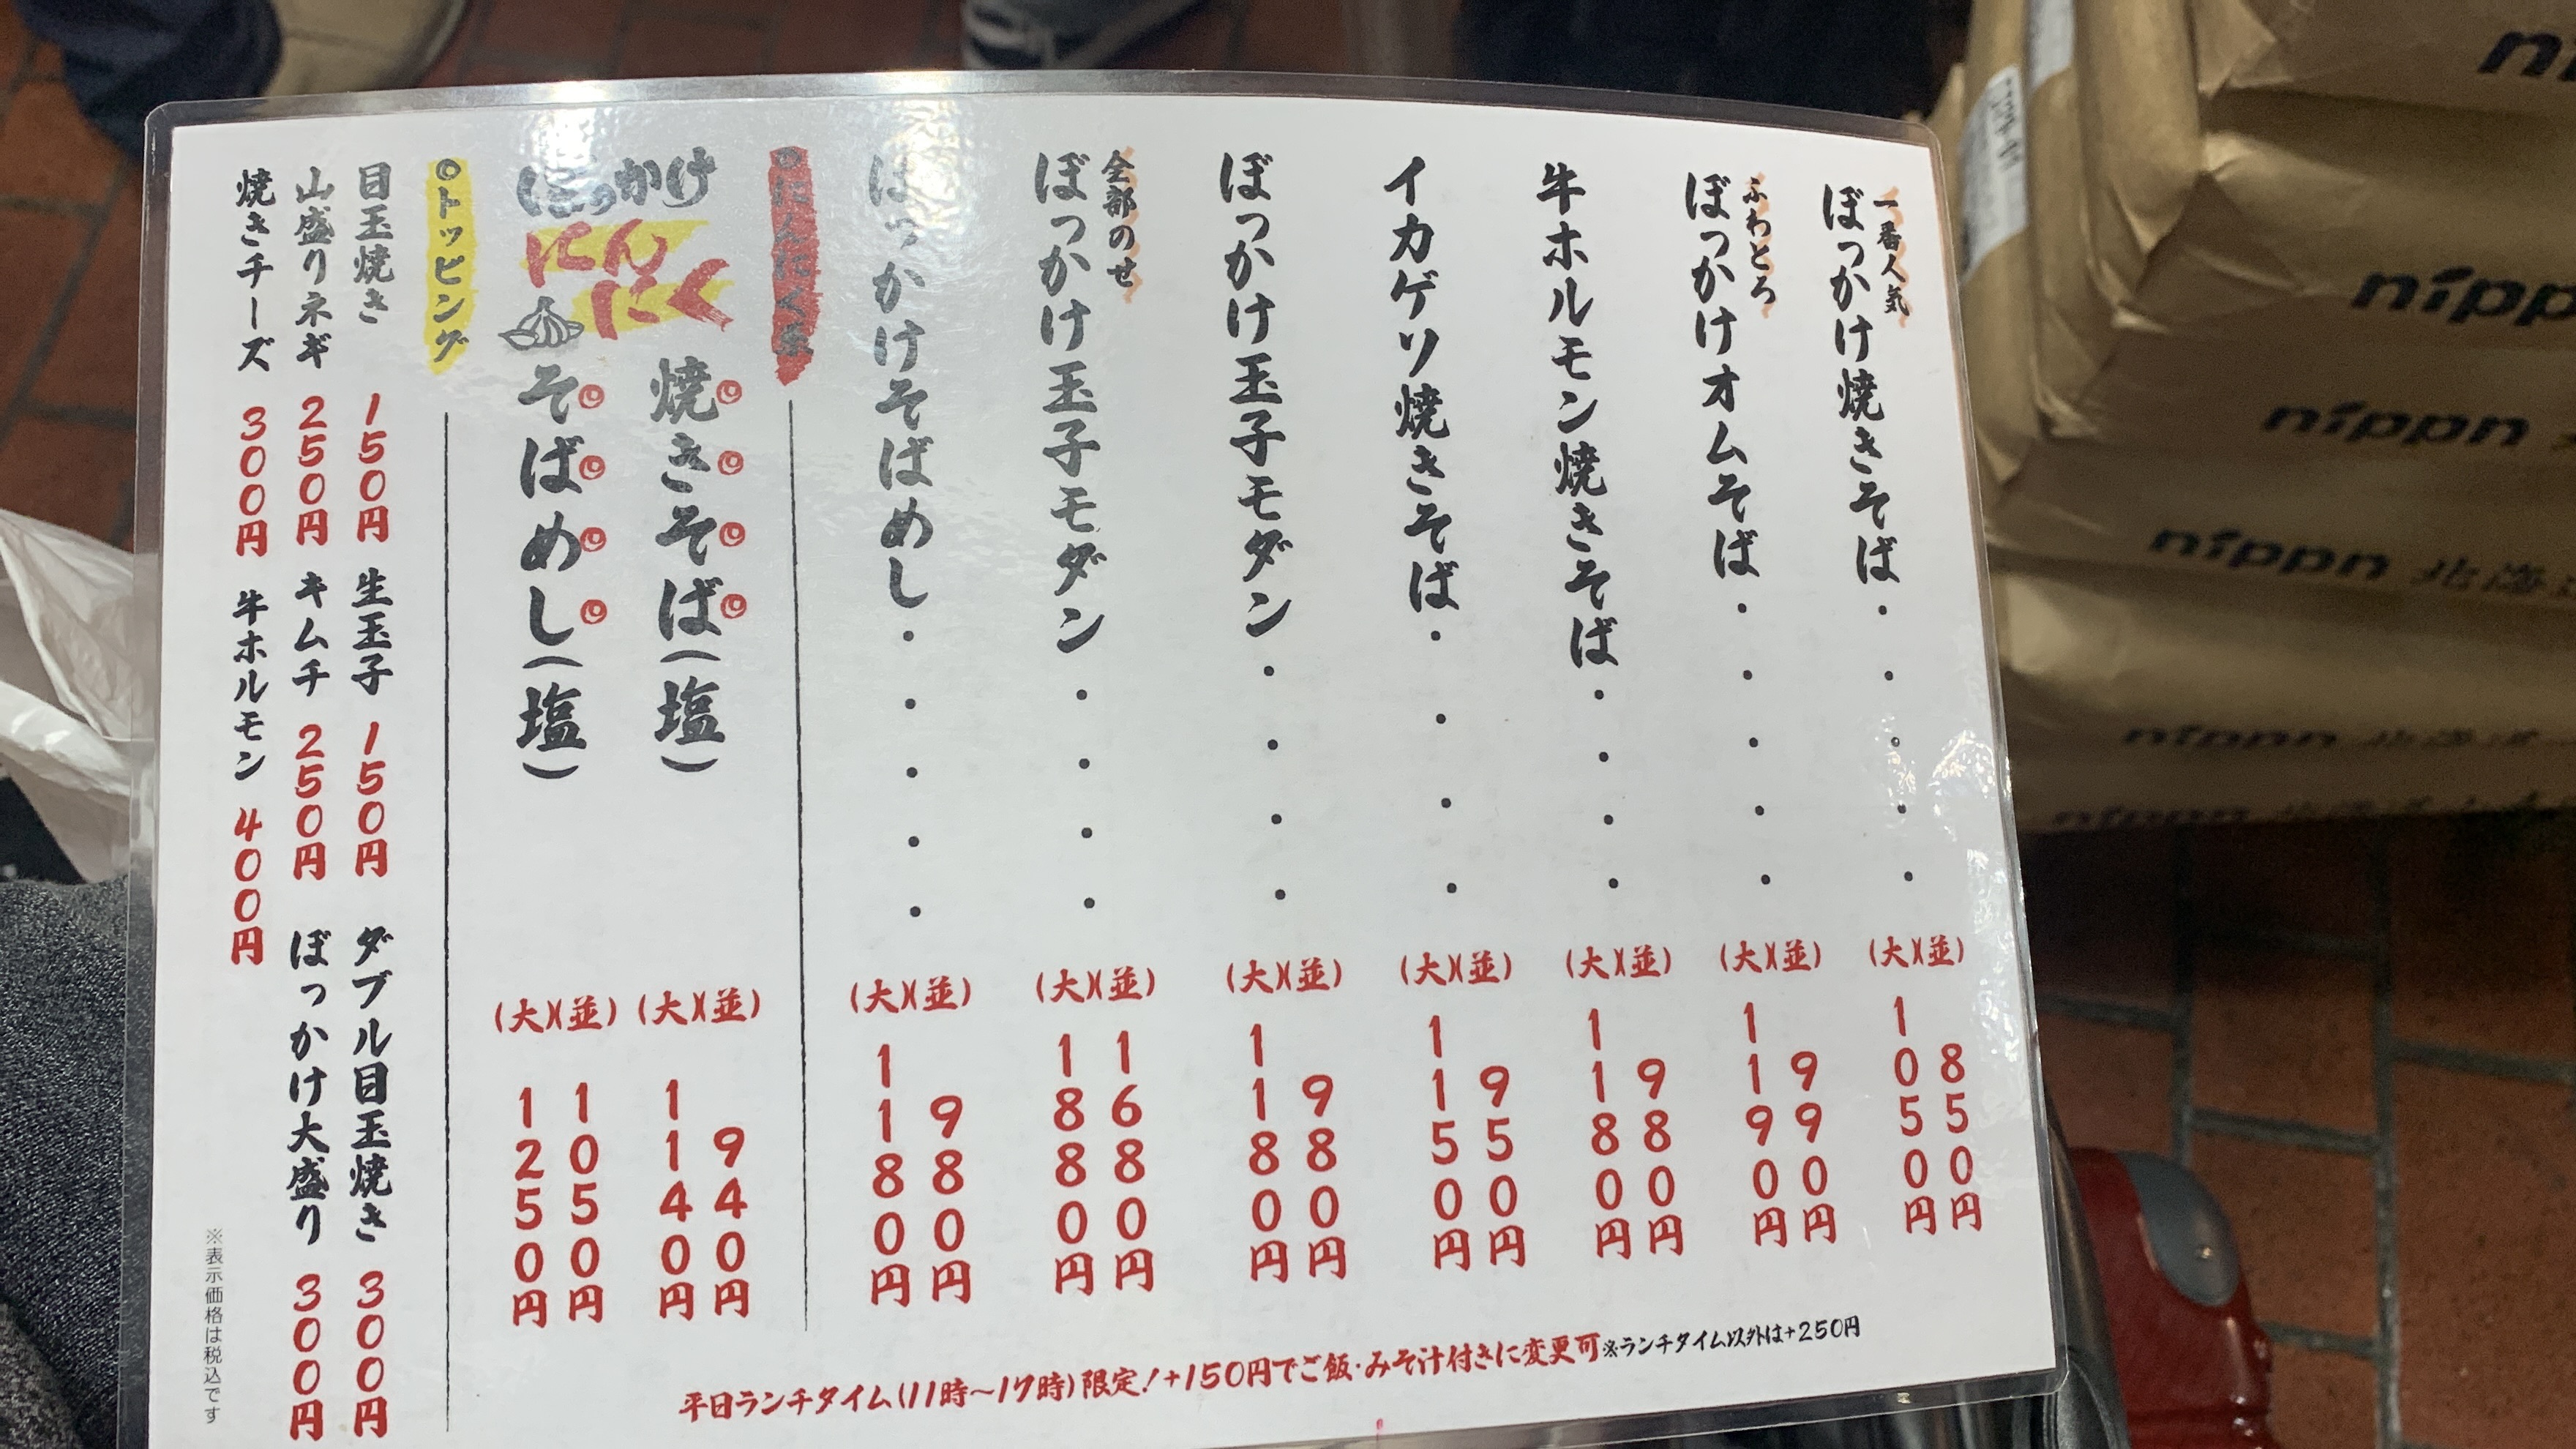 一番人気
ぼっかけ焼きそば・・・・・
(並) 850円
(大) 1050円
ふわとろ
ぼっかけオムそば・・・・・
(並) 990円
(大) 1190円
牛ホルモン焼きそば・・・・
(並) 980円
(大) 1180円
イカゲソ焼きそば・・・・
(並) 950円
(大) 1150円
ぼっかけ玉子モダン・・・・
(並) 980円
(大) 1180円
全部のせ
ぼっかけ玉子モダン・・・・
(並) 1680円
(大) 1880円
ぼっかけそばめし・・・・・
(並) 980円
(大) 1180円
ぼっかけ
にんにく
焼きそば(塩)
(並) 940円
(大) 1140円
そばめし(塩)
(並) 1050円
(大) 1250円
◎トッピング
目玉焼き 150円 生玉子 150円 ダブル目玉焼き 300円
山盛りネギ 250円 キムチ 250円 ぼっかけ大盛り 300円
焼きチーズ 300円 牛ホルモン 400円
※表示価格は税込です
平日ランチタイム(11時~17時)限定!+150円でご飯・みそ汁付きに変更可※ランチタイム以外は+250円
nippn
nippn
nippn 北海道
nippn 北海道
nippn